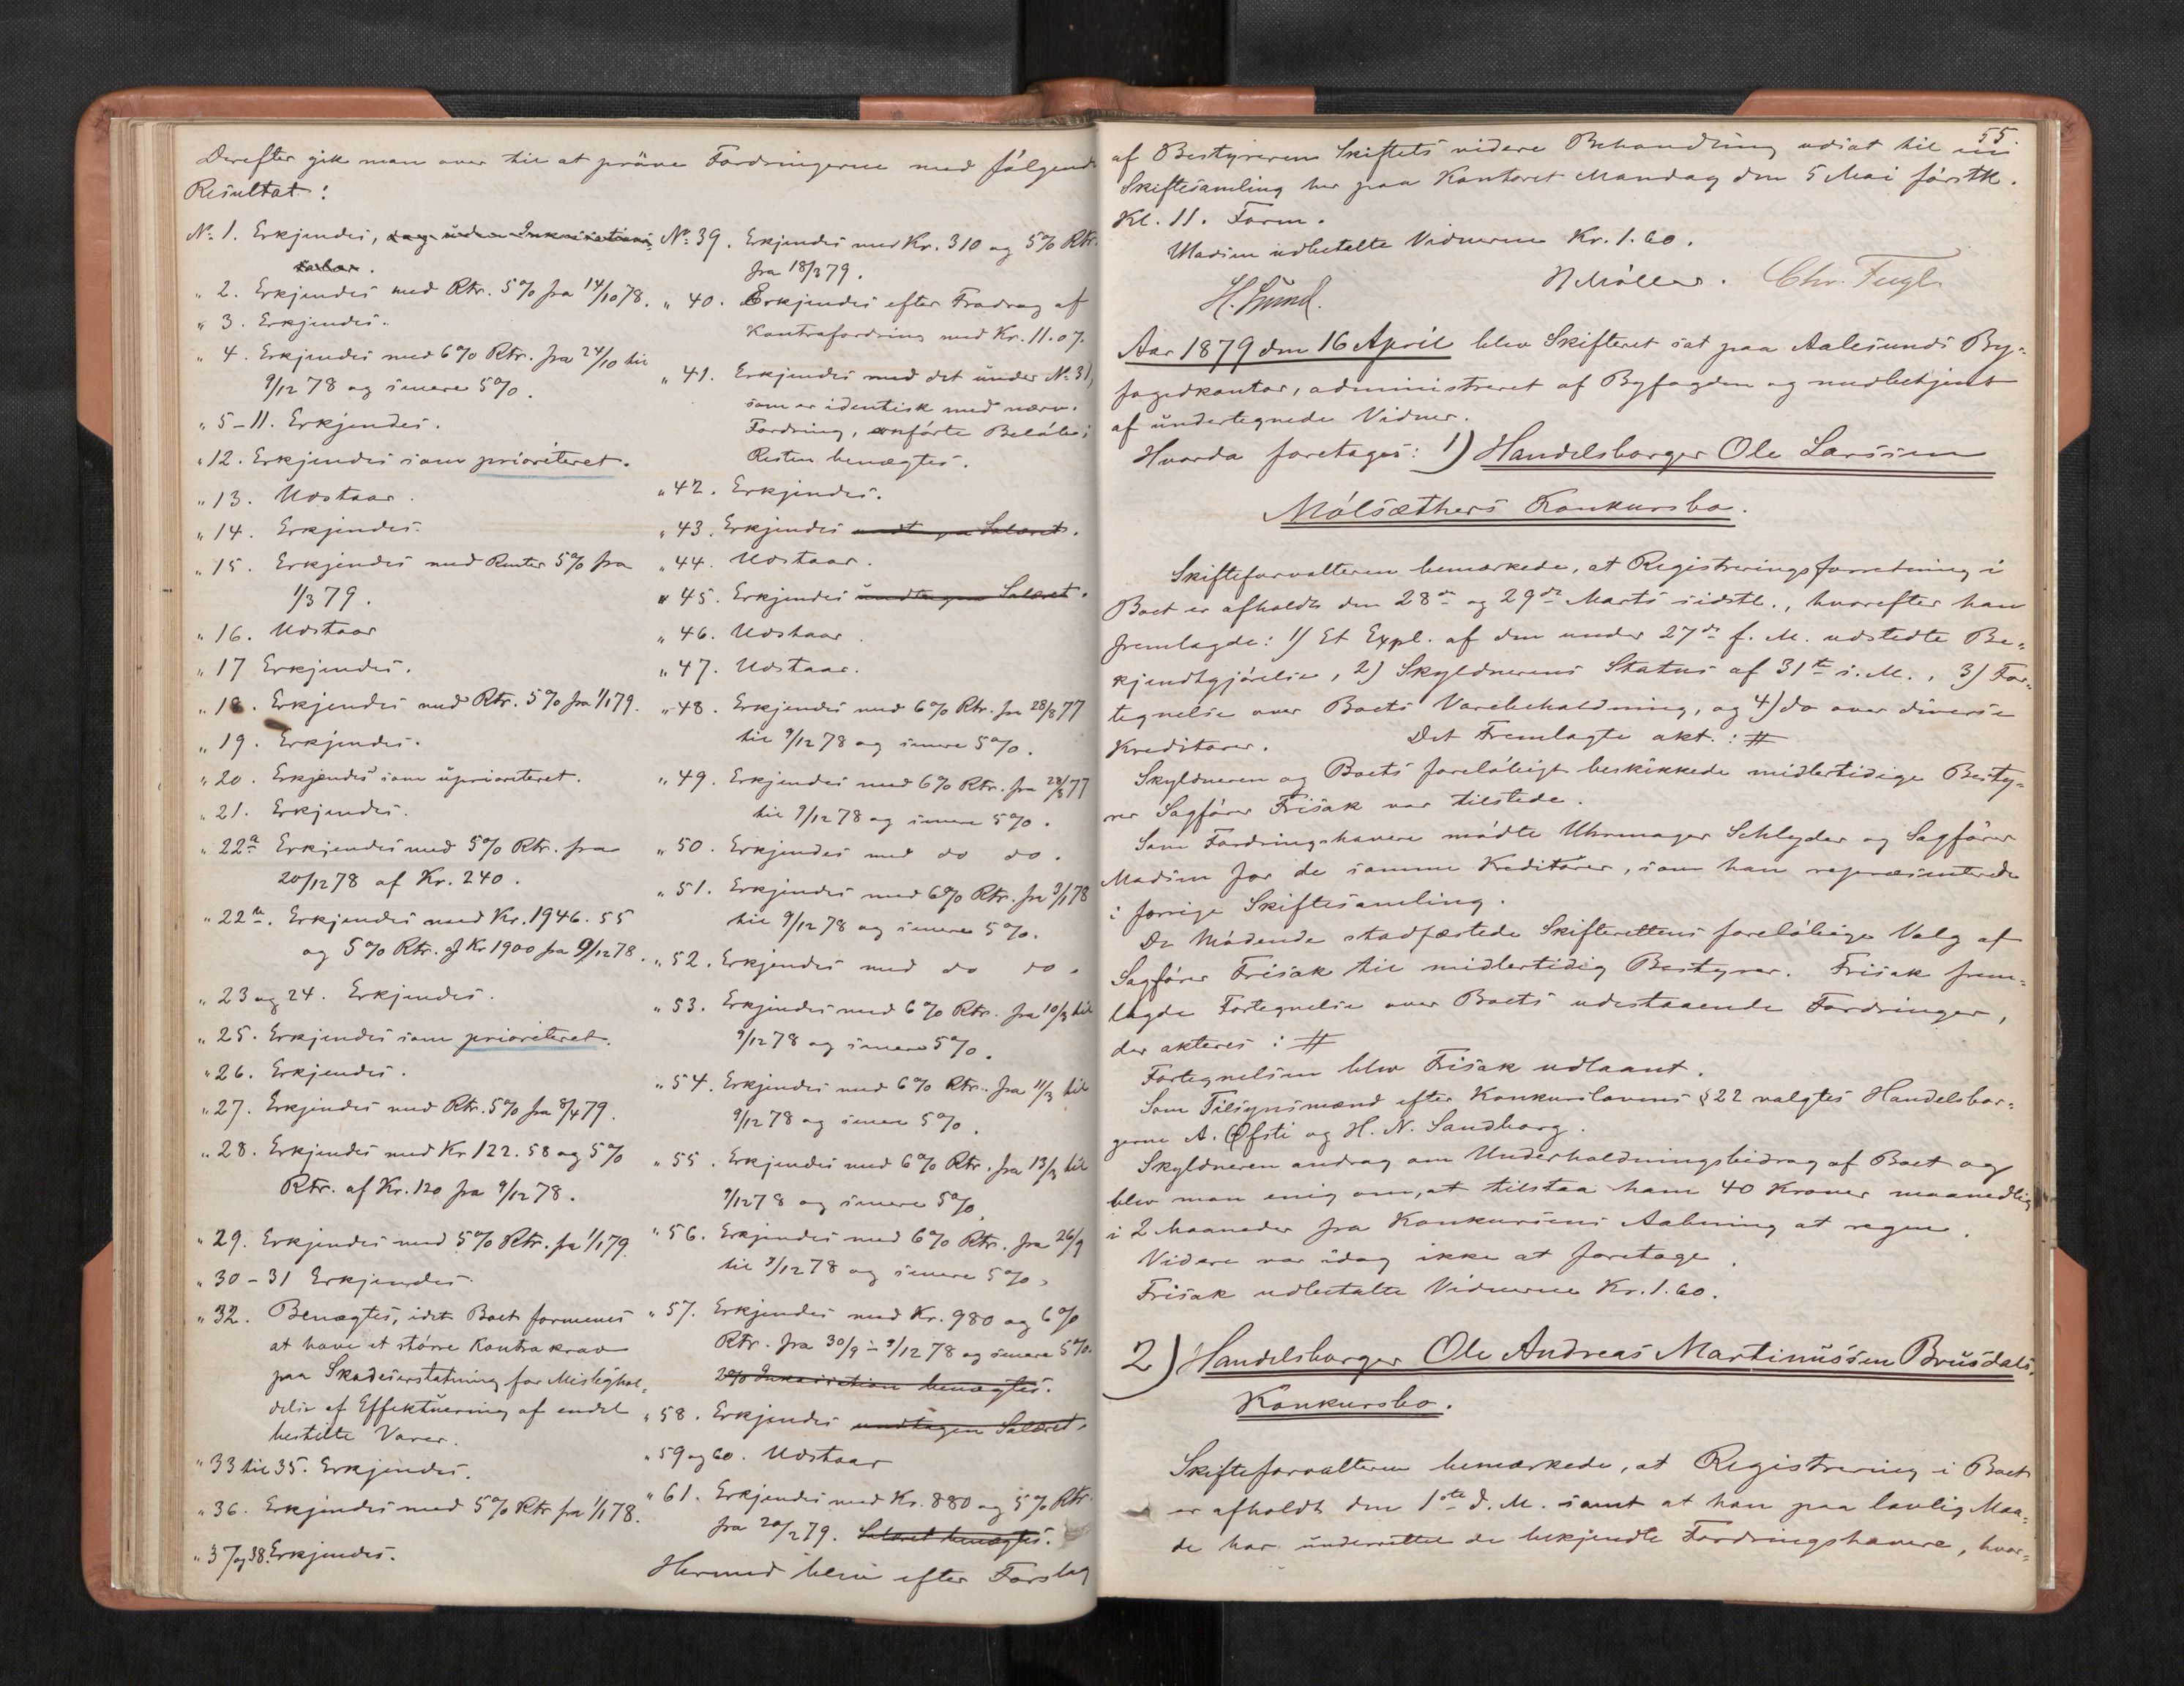 Derefter gik man over til at pröve Fordringerne med fölgende
Resultat:
No 1. Erkjendes, dog uden Inkassations
salær.
" 2. Erkjendes med Rtr. 5% fra 14/10 78.
" 3. Erkjendes.
" 4. Erkjendes med 6% Rtr. fra 24/10 til
9/12 78 og senere 5%.
" 5-11. Erkjendes.
" 12. Erkjendes som prioriteret.
" 13. Udstaar.
" 14. Erkjendes.
" 15. Erkjendes med Renter 5% fra
1/3 79.
" 16. Udstaar
" 17 Erkjendes.
" 18. Erkjendes med Rtr. 5% fra 1/1 79.
" 19. Erkjendes.
" 20. Erkjendes som uprioriteret.
" 21. Erkjendes.
" 22a Erkjendes med 5% Rtr. fra
20/12 78 af Kr. 240.
" 22b. Erkjendes med Kr. 1946.55
og 5% Rtr. af Kr 1900 fra 9/12 78.
" 23 og 24. Erkjendes.
" 25. Erkjendes som prioriteret.
" 26. Erkjendes.
" 27. Erkjendes med Rtr. 5% fra 8/4 79.
" 28. Erkjendes med Kr 122.58 og 5%
Rtr. af Kr. 120 fra 9/12 78.
" 29. Erkjendes med 5% Rtr. fra 1/1 79.
" 30-31 Erkjendes.
" 32. Benægtes, idet Boet formenes
at have et större Kontrakrav
paa Skadeserstatning for Mislighol-
delse af Effektuering af endel
bestilte Varer.
" 33 til 35. Erkjendes.
" 36. Erkjendes med 5% Rtr fra 1/1 78.
" 37 og 38. Erkjendes.
No 39. Erkjendes med Kr. 310 og 5% Rtr.
fra 18/3 79.
" 40. Erkjendes efter Fradrag af
Kontrafordring med Kr. 11.07.
" 41. Erkjendes med det under No 31,
som er identisk med nærv.
Fordring, anförte Belöb;
Resten benægtes.
" 42. Erkjendes.
" 43. Erkjendes undt. Salæret.
" 44. Udstaar.
" 45. Erkjendes undtagen Salæret.
" 46. Udstaar.
" 47. Udstaar.
" 48. Erkjendes med 6% Rtr. fra 28/8 77
til 9/12 78 og senere 5%.
" 49. Erkjendes med 6% Rtr. fra 28/8 77
til 9/12 78 og senere 5%.
" 50. Erkjendes med do do.
" 51. Erkjendes med 6% Rtr. fra 3/1 78
til 9/12 78 og senere 5%.
" 52. Erkjendes med do do.
" 53. Erkjendes med 6% Rtr. fra 10/3 til
9/12 78 og senere 5%.
" 54. Erkjendes med 6% Rtr. fra 11/3 til
9/12 78 og senere 5%.
" 55. Erkjendes med 6% Rtr. fra 13/3 til
9/12 78 og senere 5%.
" 56. Erkjendes med 6% Rtr. fra 26/9
til 9/12 78 og senere 5%.
" 57. Erkjendes med Kr. 980 og 6%
Rtr. fra 30/9 - 9/12 78 og senere 5%.
2% Inkassation benægtes.
" 58. Erkjendes undtagen Salæret.
" 59 og 60. Udstaar
" 61. Erkjendes med Kr. 880 og 5% Rtr.
fra 20/2 79. Salæret benægtes.
Hermed blev efter Forslag
55.
af Bestyreren Skiftets videre Behandling udsat til en
Skiftesamling her paa Kontoret Mandag den 5 Mai förstk.
Kl. 11. Form.
Madsen udbetalte Vidnerne Kr. 1.60.
H. Lund. N Möller. Chr. Fugl.
Aar 1879 den 16 April blev Skifteret sat paa Aalesunds By-
fogedkontor, administreret af Byfogden og medbetjent
af undertegnede Vidner.
Hvorda foretages: 1) Handelsborger Ole Larssen
Mölsæthers Konkursbo.
Skifteforvalteren bemærkede, at Registreringsforretning i
Boet er afholdt den 28de og 29de Marts sidstl., hvorefter han
fremlagde: 1) Et Expl. af den under 27de f. M. udstedte Be-
kjendtgjörelse, 2) Skyldnerens Status af 31te s. M., 3) For-
tegnelse over Boets Varebeholdning, og 4) do over diverse
Kreditorer. Det Fremlagte akt.: #
Skyldneren og Boets foreløbigt beskikkede midlertidige Besty-
rer Sagförer Frisak var tilstede.
Som Fordringshavere mödte Uhrmager Schlyder og Sagförer
Madsen for de samme Kreditorer, som han repræsenterede
i forrige Skiftesamling.
De Mödende stadfæstede Skifterettens forelöbige Valg af
Sagförer Frisak til midlertidig Bestyrer. Frisak frem-
lagde Fortegnelse over Boets udestaaende Fordringer,
der akteres: #
Fortegnelsen blev Frisak udlaant.
Som Tilsynsmænd efter Konkurslovens § 22 valgtes Handelsbor-
gerne A. Øfsti og H. N. Sandborg.
Skyldneren androg om Underholdningsbidrag af Boet og
blev man enig om, at tilstaa ham 40 Kroner maanedlig
i 2 Maaneder fra Konkursens Aabning at regne.
Videre var idag ikke at foretage.
Frisak udbetalte Vidnerne Kr. 1.60.
2) Handelsborger Ole Andreas Martinussen Brusdals
Konkursbo.
Skifteforvalteren bemærkede, at Registrering i Boet
er afholdt den 1ste d. M. samt at han paa lovlig Maa-
de har underrettet de bekjendte Fordringshavere, hvor-